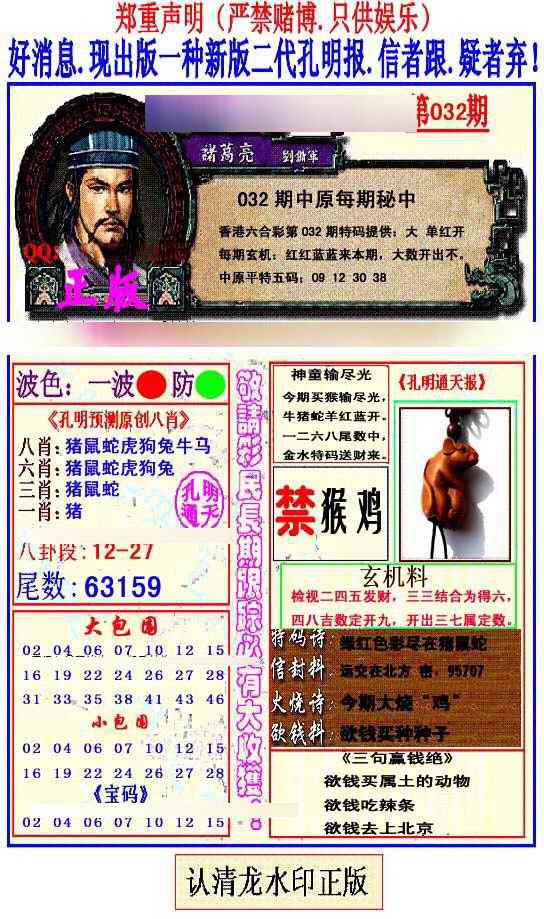 郑重声明（严禁赌博.只供娱乐）
好消息.现出版一种新版二代孔明报.信者跟.疑者弃!
第032期
諸葛亮
032 期中原每期秘中
香港六合彩第 032 期特码提供：大 单红开
每期玄机：红红蓝蓝来本期，大数开出不。
中原平特五码：09 12 30 38
QQ:
正版
波色：一波 防
《孔明预测原创八肖》
八肖：猪鼠蛇虎狗兔牛马
六肖：猪鼠蛇虎狗兔
三肖：猪鼠蛇
一肖：猪
孔明
通天
八卦段：12-27
尾数：63159
大包围
02 04 06 07 10 12 15
16 19 22 24 26 27 28
31 33 35 38 41 43 46
小包围
02 04 06 07 10 12 15
16 19 22 24 26 27 28
《宝码》
02 04 06 07 10 12 15
敬請彩民長期跟踪必有大收獲
神童输尽光
今期买猴输尽光，
牛猪蛇羊红蓝开。
一二六八尾数中，
金水特码送财来。
《孔明通天报》
禁猴鸡
玄机料
检视二四五发财，三三结合为得六，
四八吉数定开九，开出三七属定数。
特码诗：绿红色彩尽在猪鼠蛇
信封料：运交在北方 密，95707
火烧诗：今期大烧“鸡”
欲钱料：欲钱买种种子
《三句赢钱绝》
欲钱买属土的动物
欲钱吃辣条
欲钱去上北京
认清龙水印正版